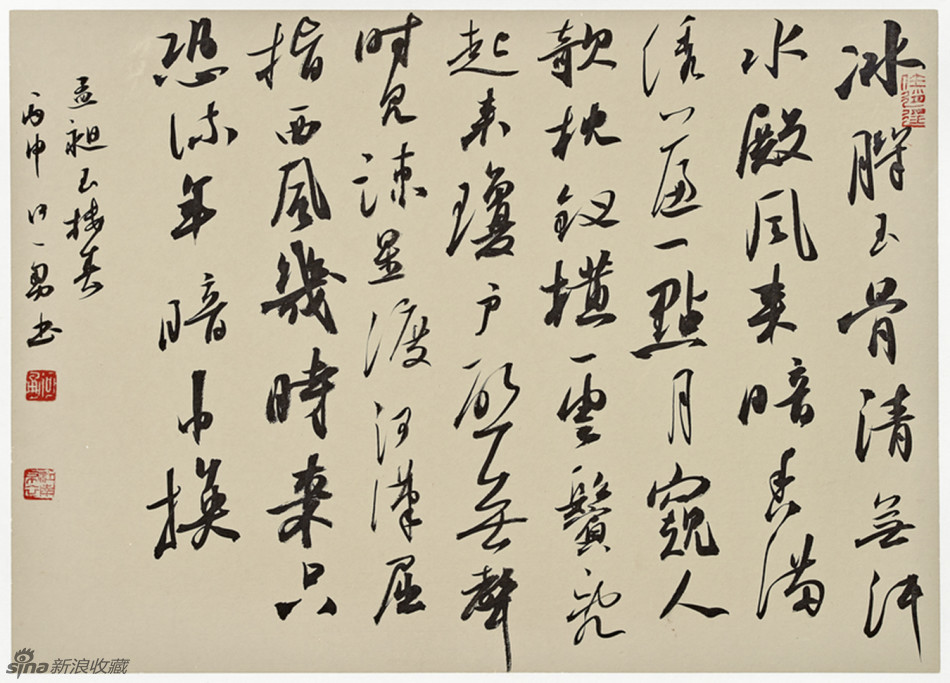 冰肌玉骨清無汗
水殿風來暗香滿
繡簾一點月窺人
欹枕釵橫雲鬢亂
起來瓊戶啟無聲
時見疎星渡河漢屈
指西風幾時來只
恐流年暗中換
孟昶玉樓春
丙申 一勇書
sina新浪收藏